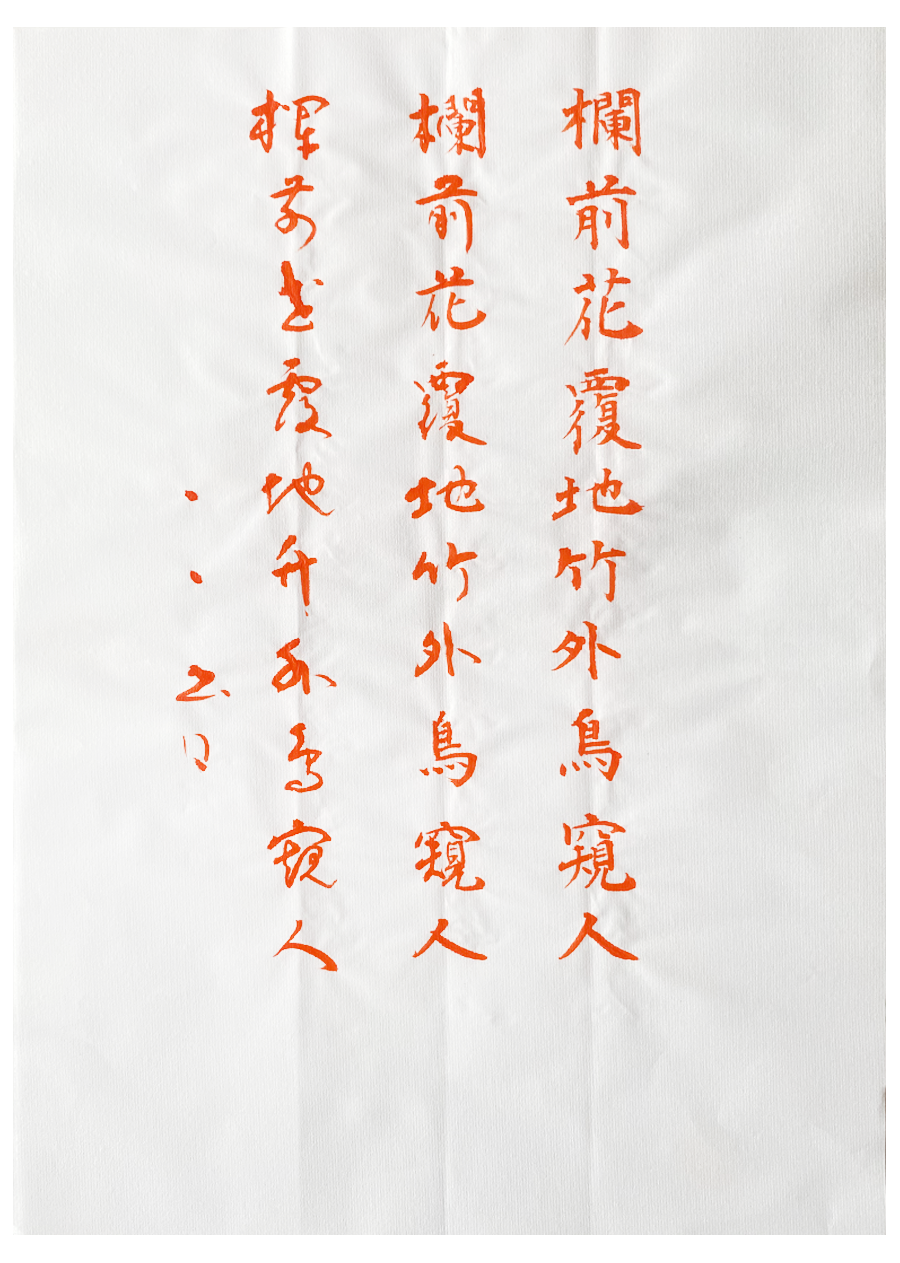 欄前花覆地竹外鳥窺人
欄前花覆地竹外鳥窺人
欄前花覆地竹外鳥窺人